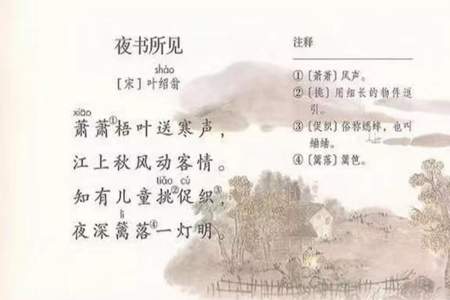 夜书所见
shào
［宋］叶绍翁
xiāo
萧萧①梧叶送寒声，
江上秋风动客情。
tiǎo cù
知有儿童挑②促织③，
lí
夜深篱落④一灯明。
注释
①〔萧萧〕风声。
②〔挑〕用细长的物件逗
引。
③〔促织〕俗称蟋蟀，也叫
蛐蛐。
④〔篱落〕篱笆。